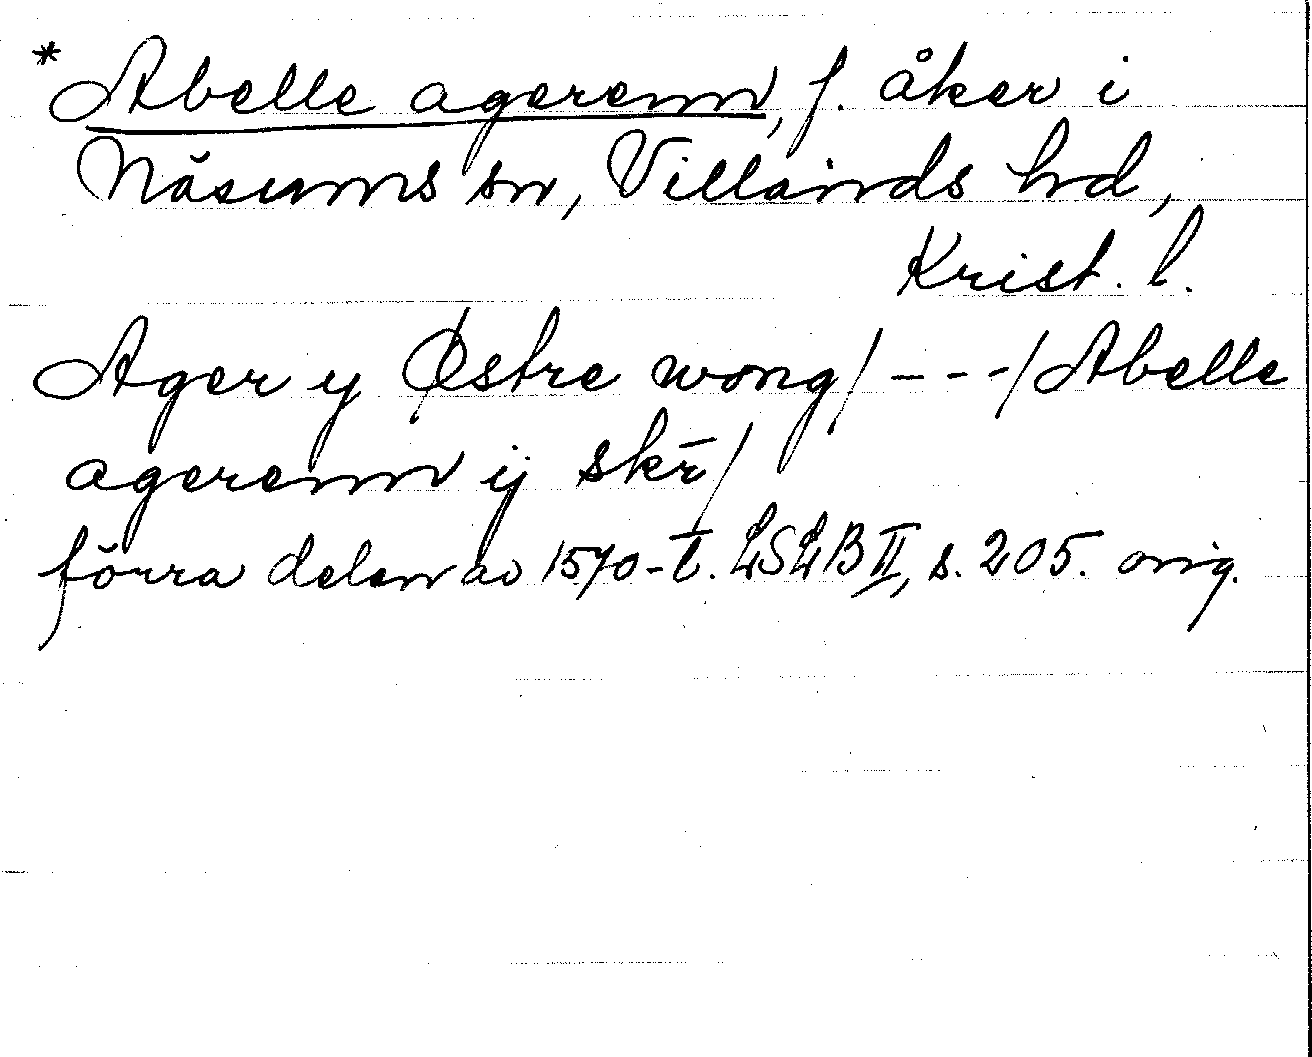 *Abelle agerenn, f. åker i
Näsums sn, Villands hd,
Krist. l.
Ager y Østre wong/ - - -/Abelle
agerenn ij skr̄/
förra delen av 1570-t. LSLB II, s. 205. orig.